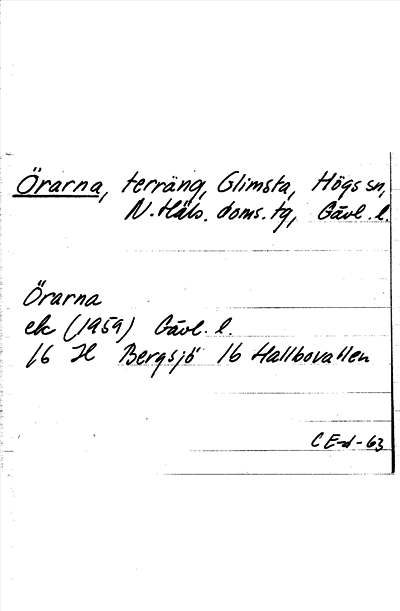 Örarna, terräng, Glimsta, Högs sn,
N. Häls. doms. tg, Gävl. l.
Örarna
ek (1959) Gävl. l.
16 H Bergsjö 16 Hallbovallen
C E-d-63